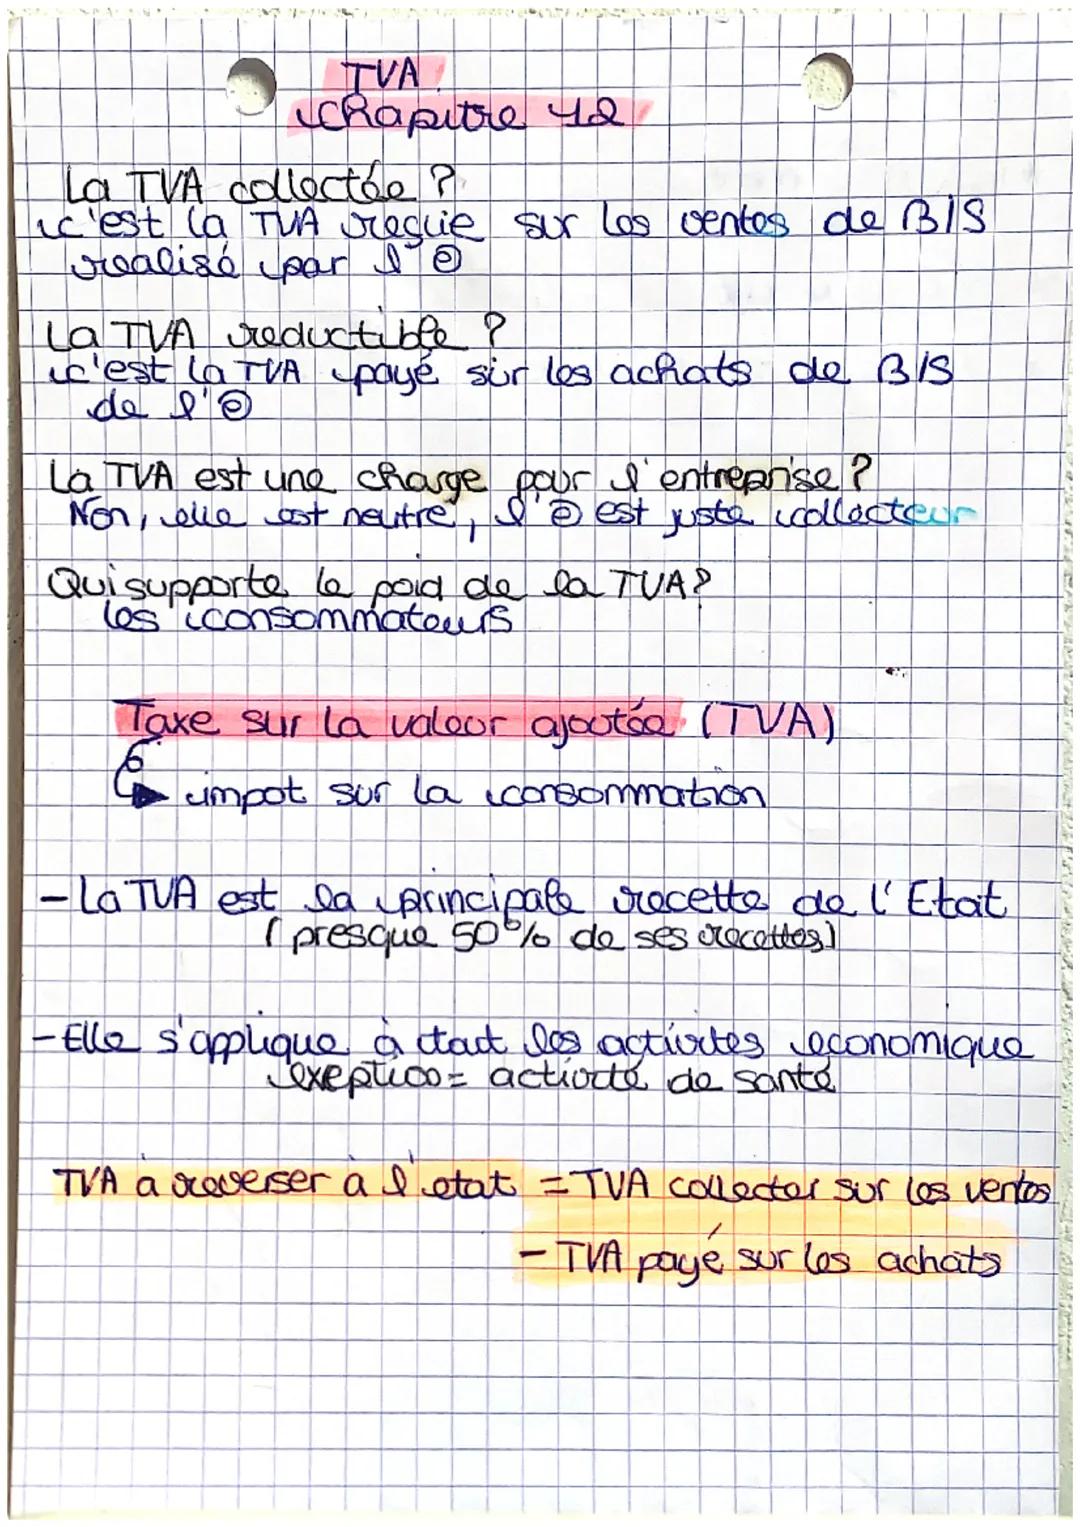 TVA
Chapitre 12
La TVA collectée ?
c'est la TVA reçue sur les ventes de B/S
realisé par l'ⓔ
La TVA reductible ?
c'est la TVA payé sur les achats de B/S
de l'ⓔ
La TVA est une charge pour l'entreprise ?
Non, elle est neutre, l'ⓔ est juste collecteur
Qui supporte le poid de la TVA ?
les consommateurs
Taxe sur la valeur ajoutée (TVA)
impot sur la consommation
- La TVA est la principale recette de l'Etat
(presque 50% de ses recettes)
- Elle s'applique à tout les activites economique
exeption = activité de santé
TVA à reverser à l'etat = TVA collecter sur les ventes
- TVA payé sur les achats